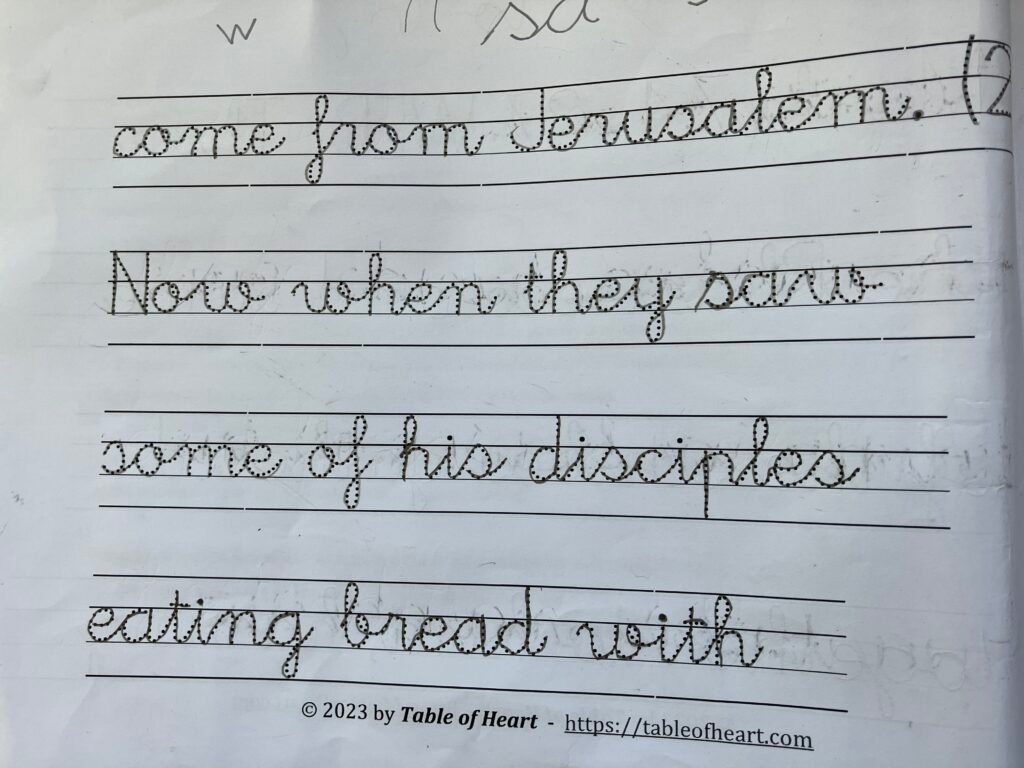 w n sa
come from Jerusalem. (2
Now when they saw
some of his disciples
eating bread with
© 2023 by Table of Heart - https://tableofheart.com